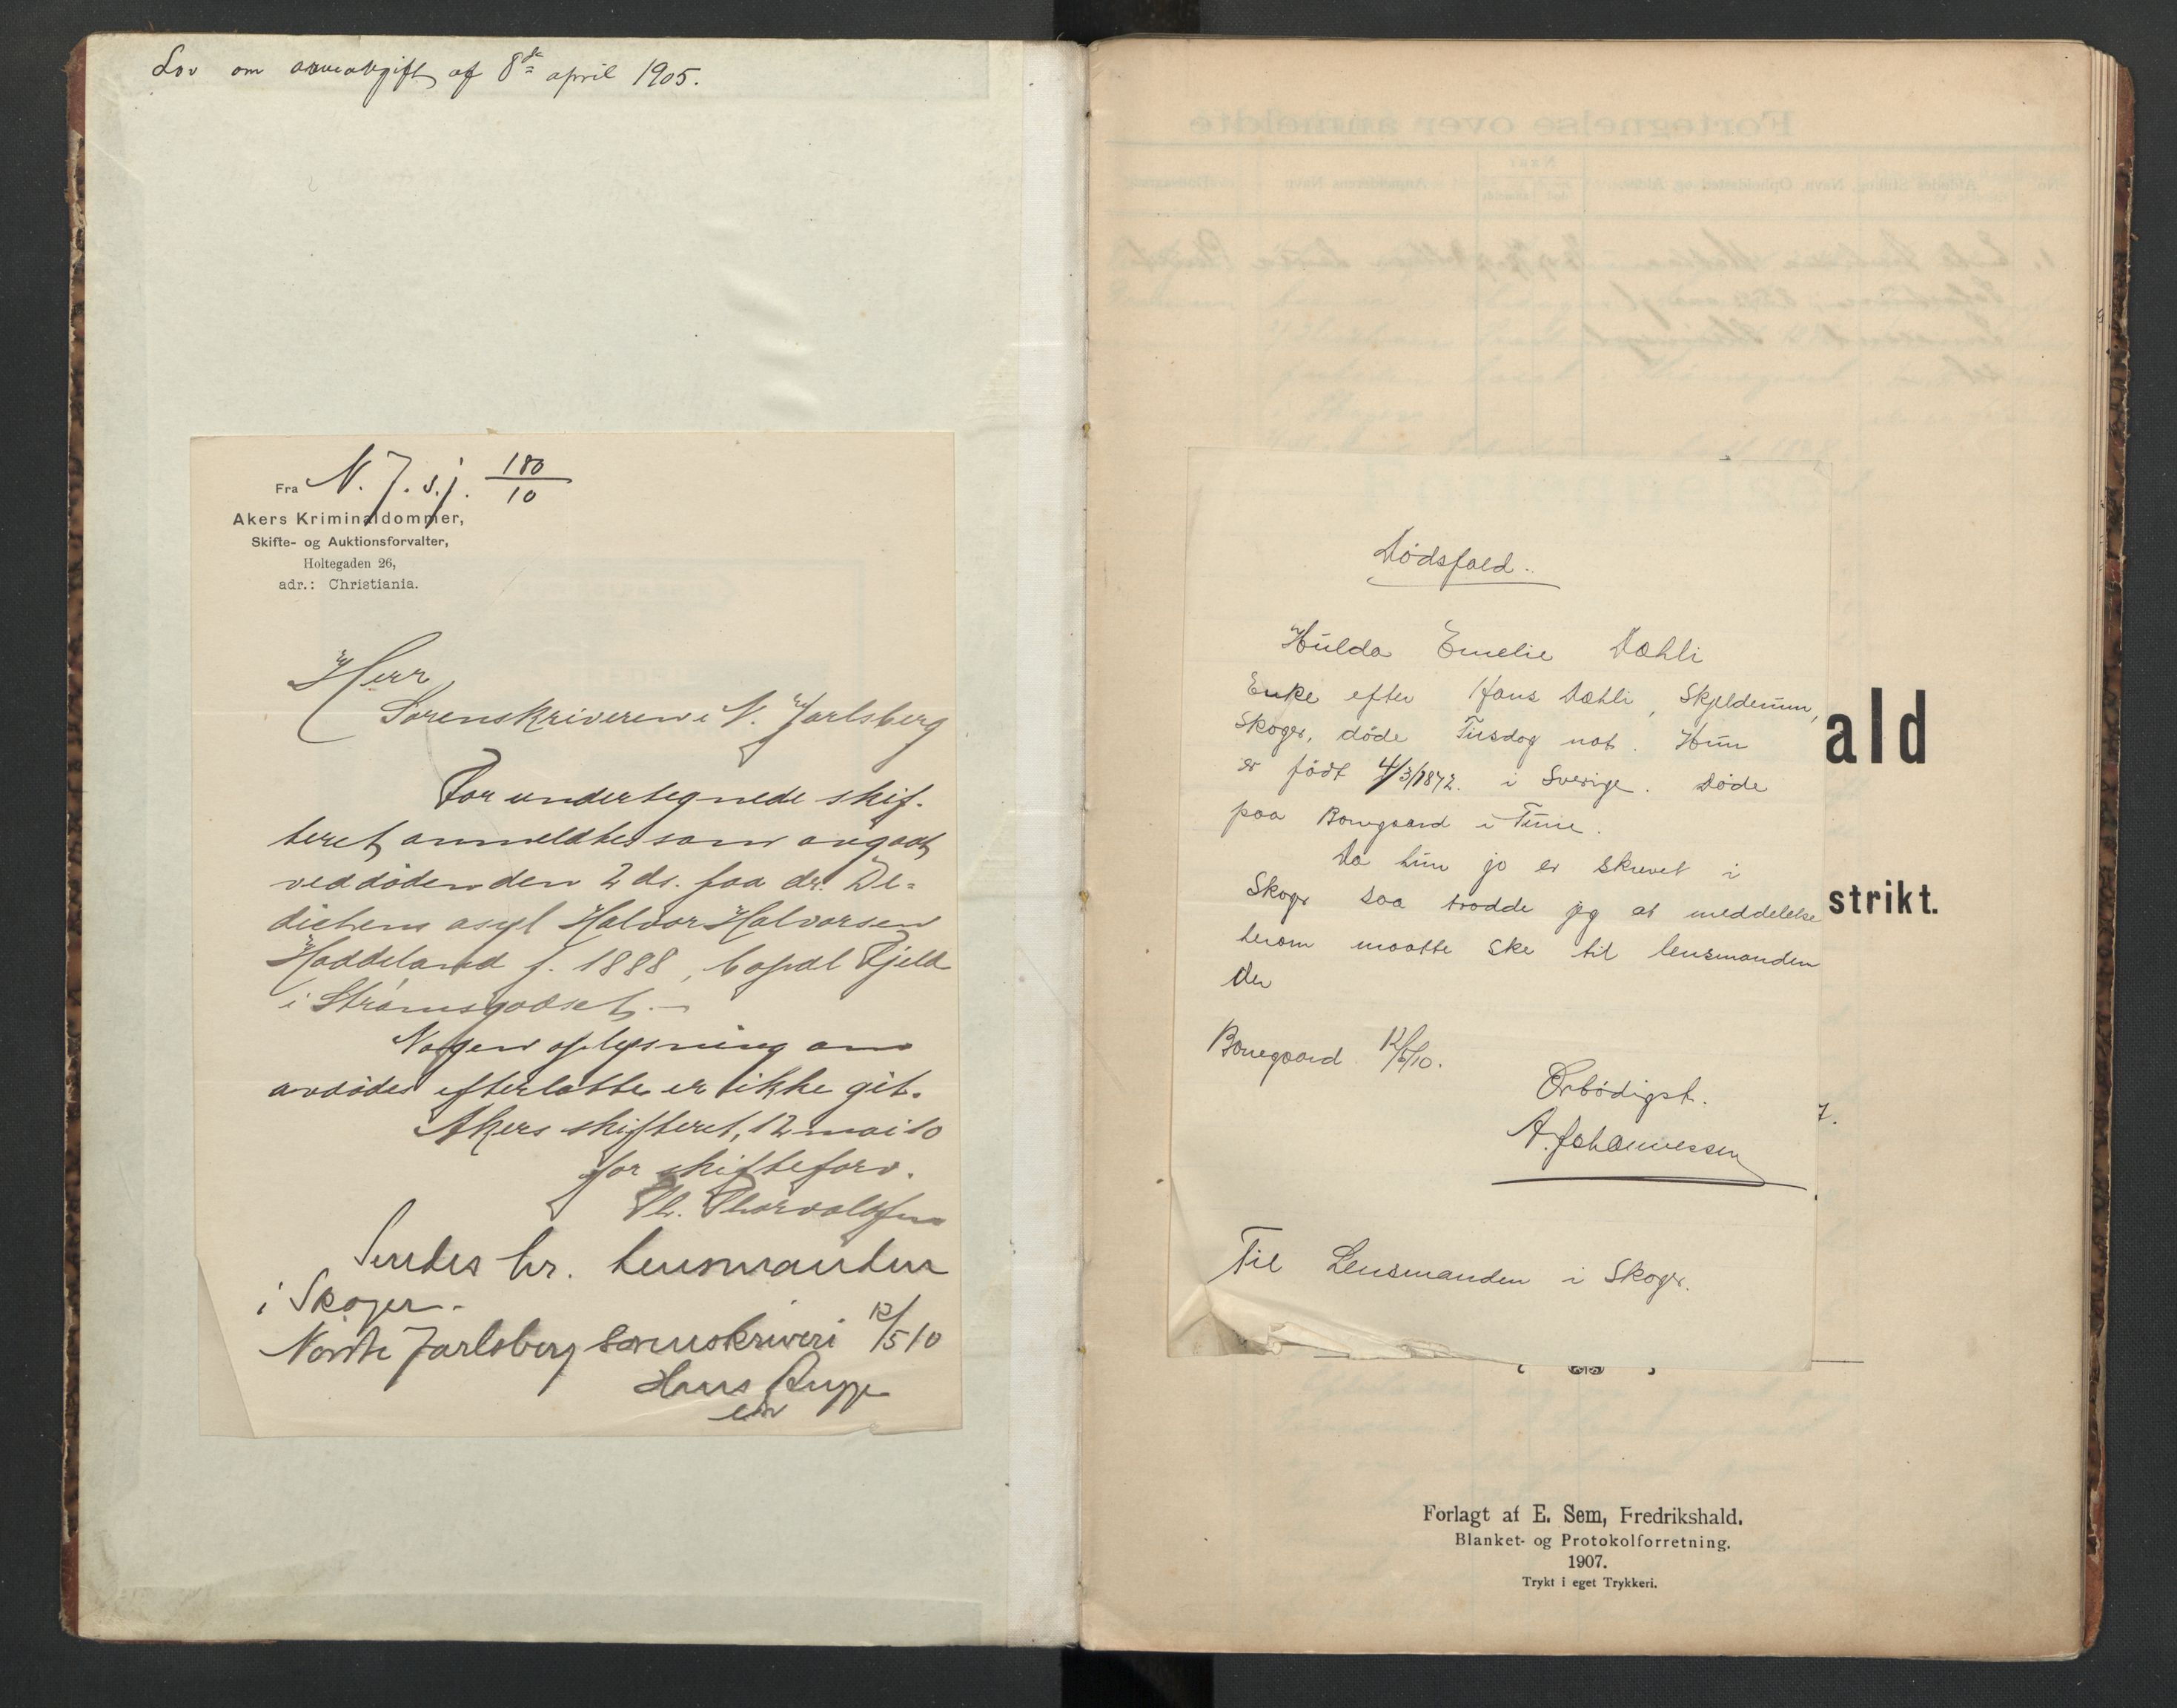 Lov om arveavgift af 8de april 1905.
Fra N. J. s.j. 180/10
Akers Kriminaldommer,
Skifte- og Auktionsforvalter,
Holtegaden 26,
adr.: Christiania.
Herr
Sorenskriveren i N. Jarlsberg
For undertegnede skif-
teret anmeldtes som avgaat
ved døden den 2 ds. paa dr. De-
dichens asyl Halvor Halvorsen
Haddeland f. 1888, bopæl Fjeld
i Strømsgodset.—
Nogen oplysning om
avdødes efterlatte er ikke git.
Akers skifteret, 12 mai 10
for skifteforv.
Th. Thorvaldsen
Sendes hr. lensmanden
i Skoger.
Nordre Jarlsberg sorenskriveri 12/5 10
Hans
Fortegnelse over anmeldte
Dødsfald.
Hulda Emelie Dæhli
Enke efter Hans Dæhli, Skjelderum,
Skoger, døde Tirsdag nat. Hun
er født 4/3/1872. i Sverige. Døde
paa Bonegaard i Tune.
Da hun jo er skrevet i
Skoger saa trodde jeg at meddelelse
herom maatte ske til lensmanden
der
Bonegaard 12/5/10.
Ærbødigst.
A. Johannessen
Til Lensmanden i Skoger.
ald
strikt.
7.
Forlagt af E. Sem, Fredrikshald.
Blanket- og Protokolforretning.
1907.
Trykt i eget Trykkeri.